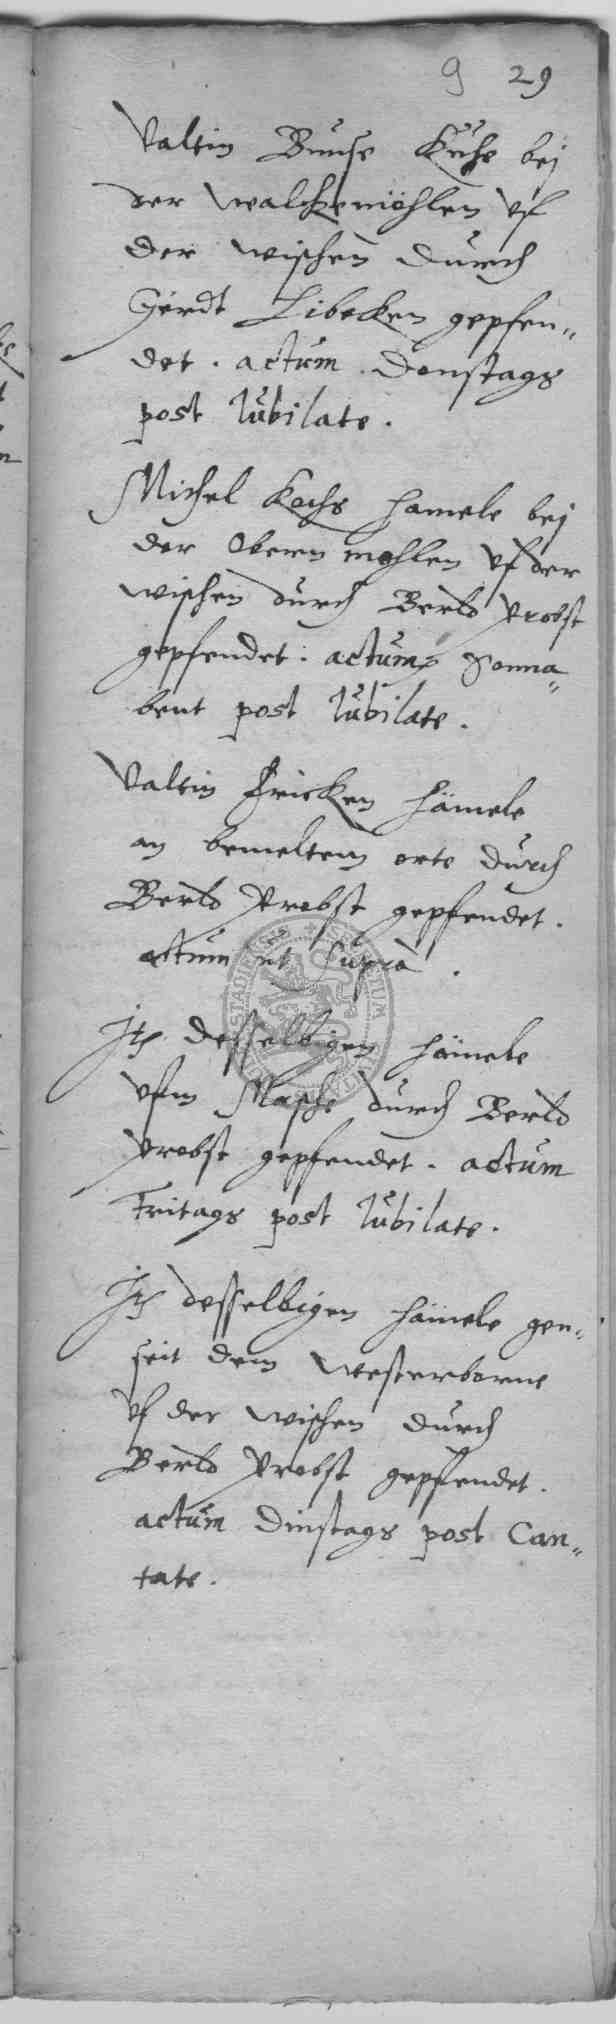 9 29
Valtin Bunse Kuhe bej
der walckemöhlen vf
der wischen durch
Gerdt Libecken gepfen„
det. actum. Donstags
post Jubilate.
Michel Kochs hamele bej
der Obern mohlen vf der
wischen durch Berld Probst
gepfendet. actum Sonna„
bent post Jubilate.
Valtin Fricken hämele
an bemeltem orte durch
Berld Probst gepfendet.
actum ut supra.
Jtem desselbigen hämele
vfm Masche durch Berld
Probst gepfendet. actum
Fritags post Jubilate.
Jtem desselbigen hämele gen„
seit dem westerborne
vf der wischen durch
Berld Probst gepfendet.
actum Dinstags post Can„
tate.